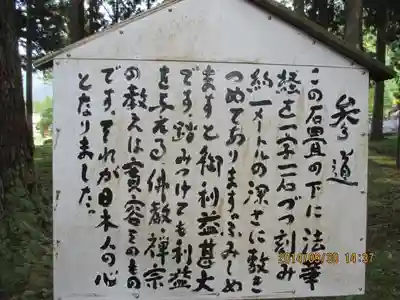 参道
この石畳の下に法華
経を一字一石づつ刻み
約一メートルの深さに敷き
つめてあります。ふみしめ
ますと御利益甚大
です。踏みつけても利益
を与える佛教禅宗
の教えは寛容そのもの
です。それが日本人の心
となりました。
2014/05/30 14:37